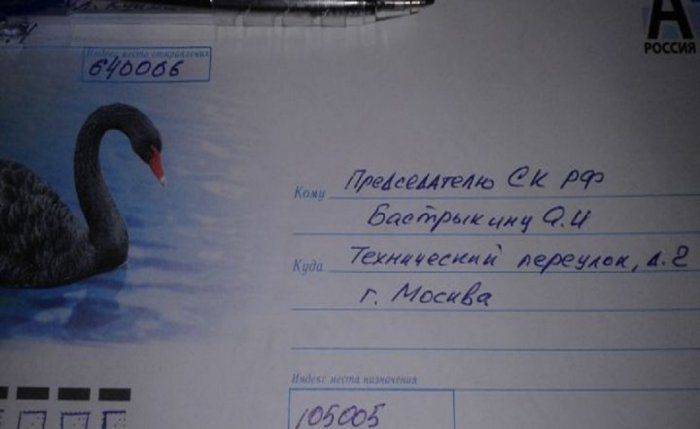 А
РОССИЯ
Индекс места отправления
640006
Кому Председателю СК РФ
Бастрыкину А.И
Куда Технический переулок, д.2
г. Москва
Индекс места назначения
105005